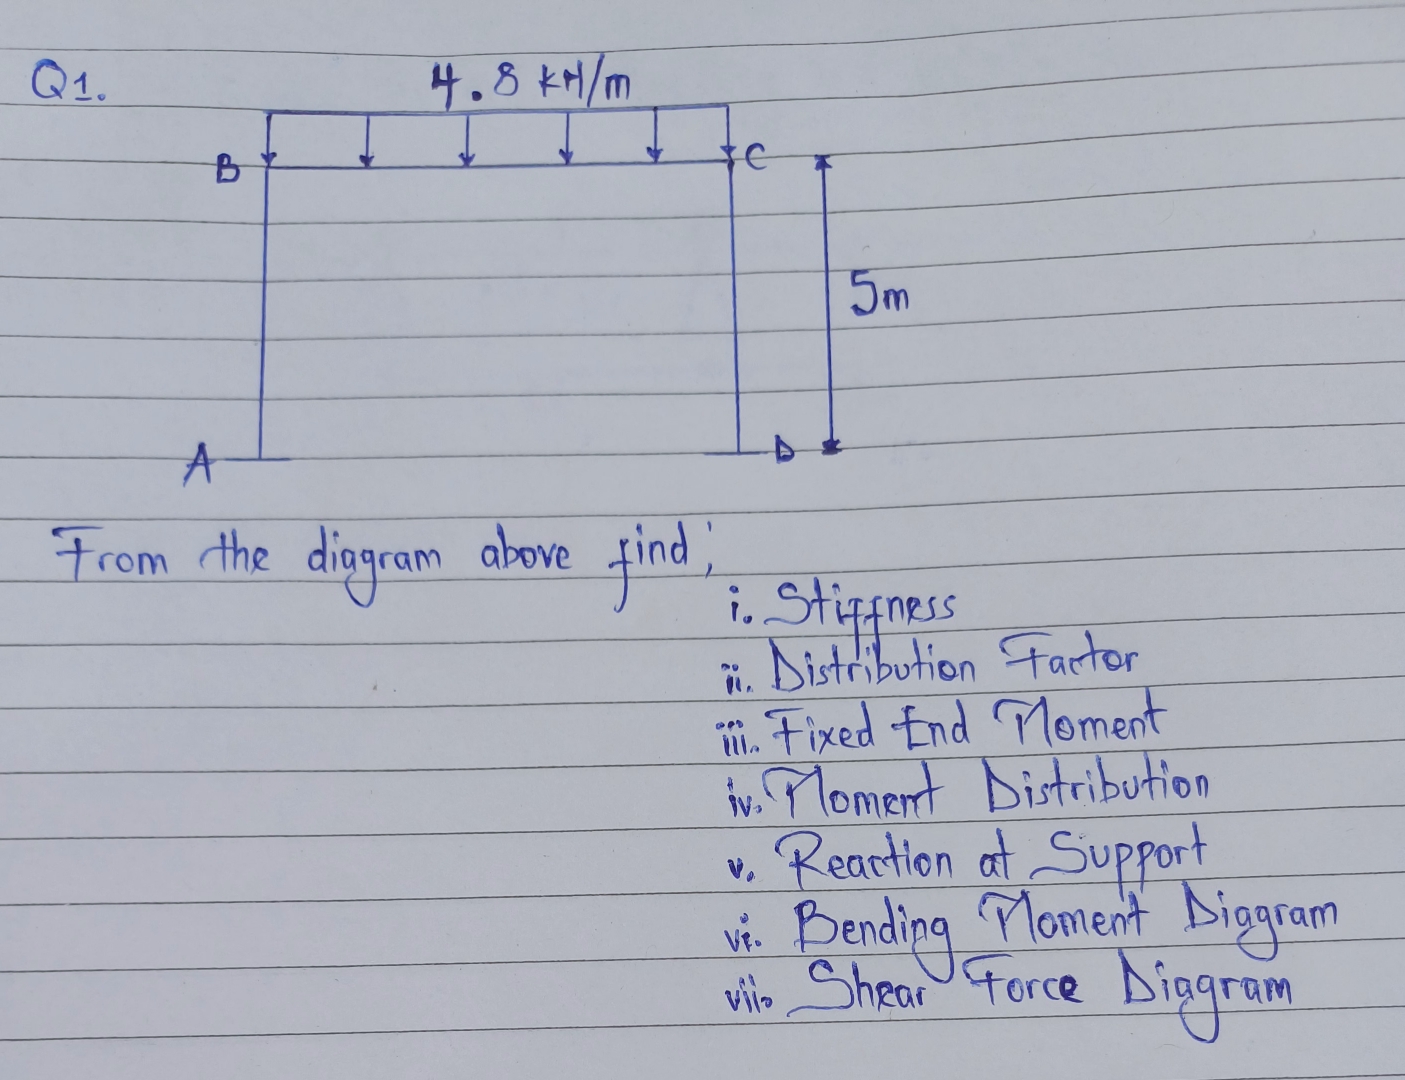 Q1.
4.8 kN/m
B
C
5m
A
D
From the diagram above find;
i. Stiffness
ii. Distribution Factor
iii. Fixed End Moment
iv. Moment Distribution
v. Reaction at Support
vi. Bending Moment Diagram
vii. Shear Force Diagram